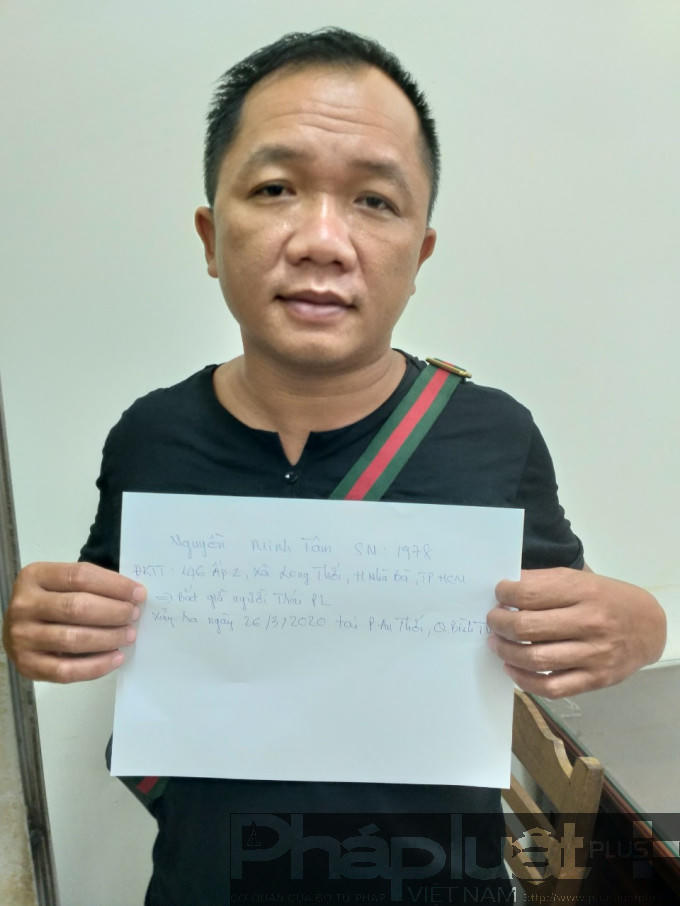 Nguyễn Minh Tâm SN: 1978
ĐKTT: 146 Ấp 2, xã Long Thới, H Nhà Bè, TP HCM
=> Bắt giữ người Trái PL
Xảy ra ngày 26/3/2020 tại P. An Thới, Q. Bình
Phápluật PLUS
CƠ QUAN CỦA BỘ TƯ PHÁP
VIỆT NAM